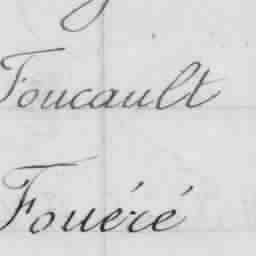 Foucault
Foueré